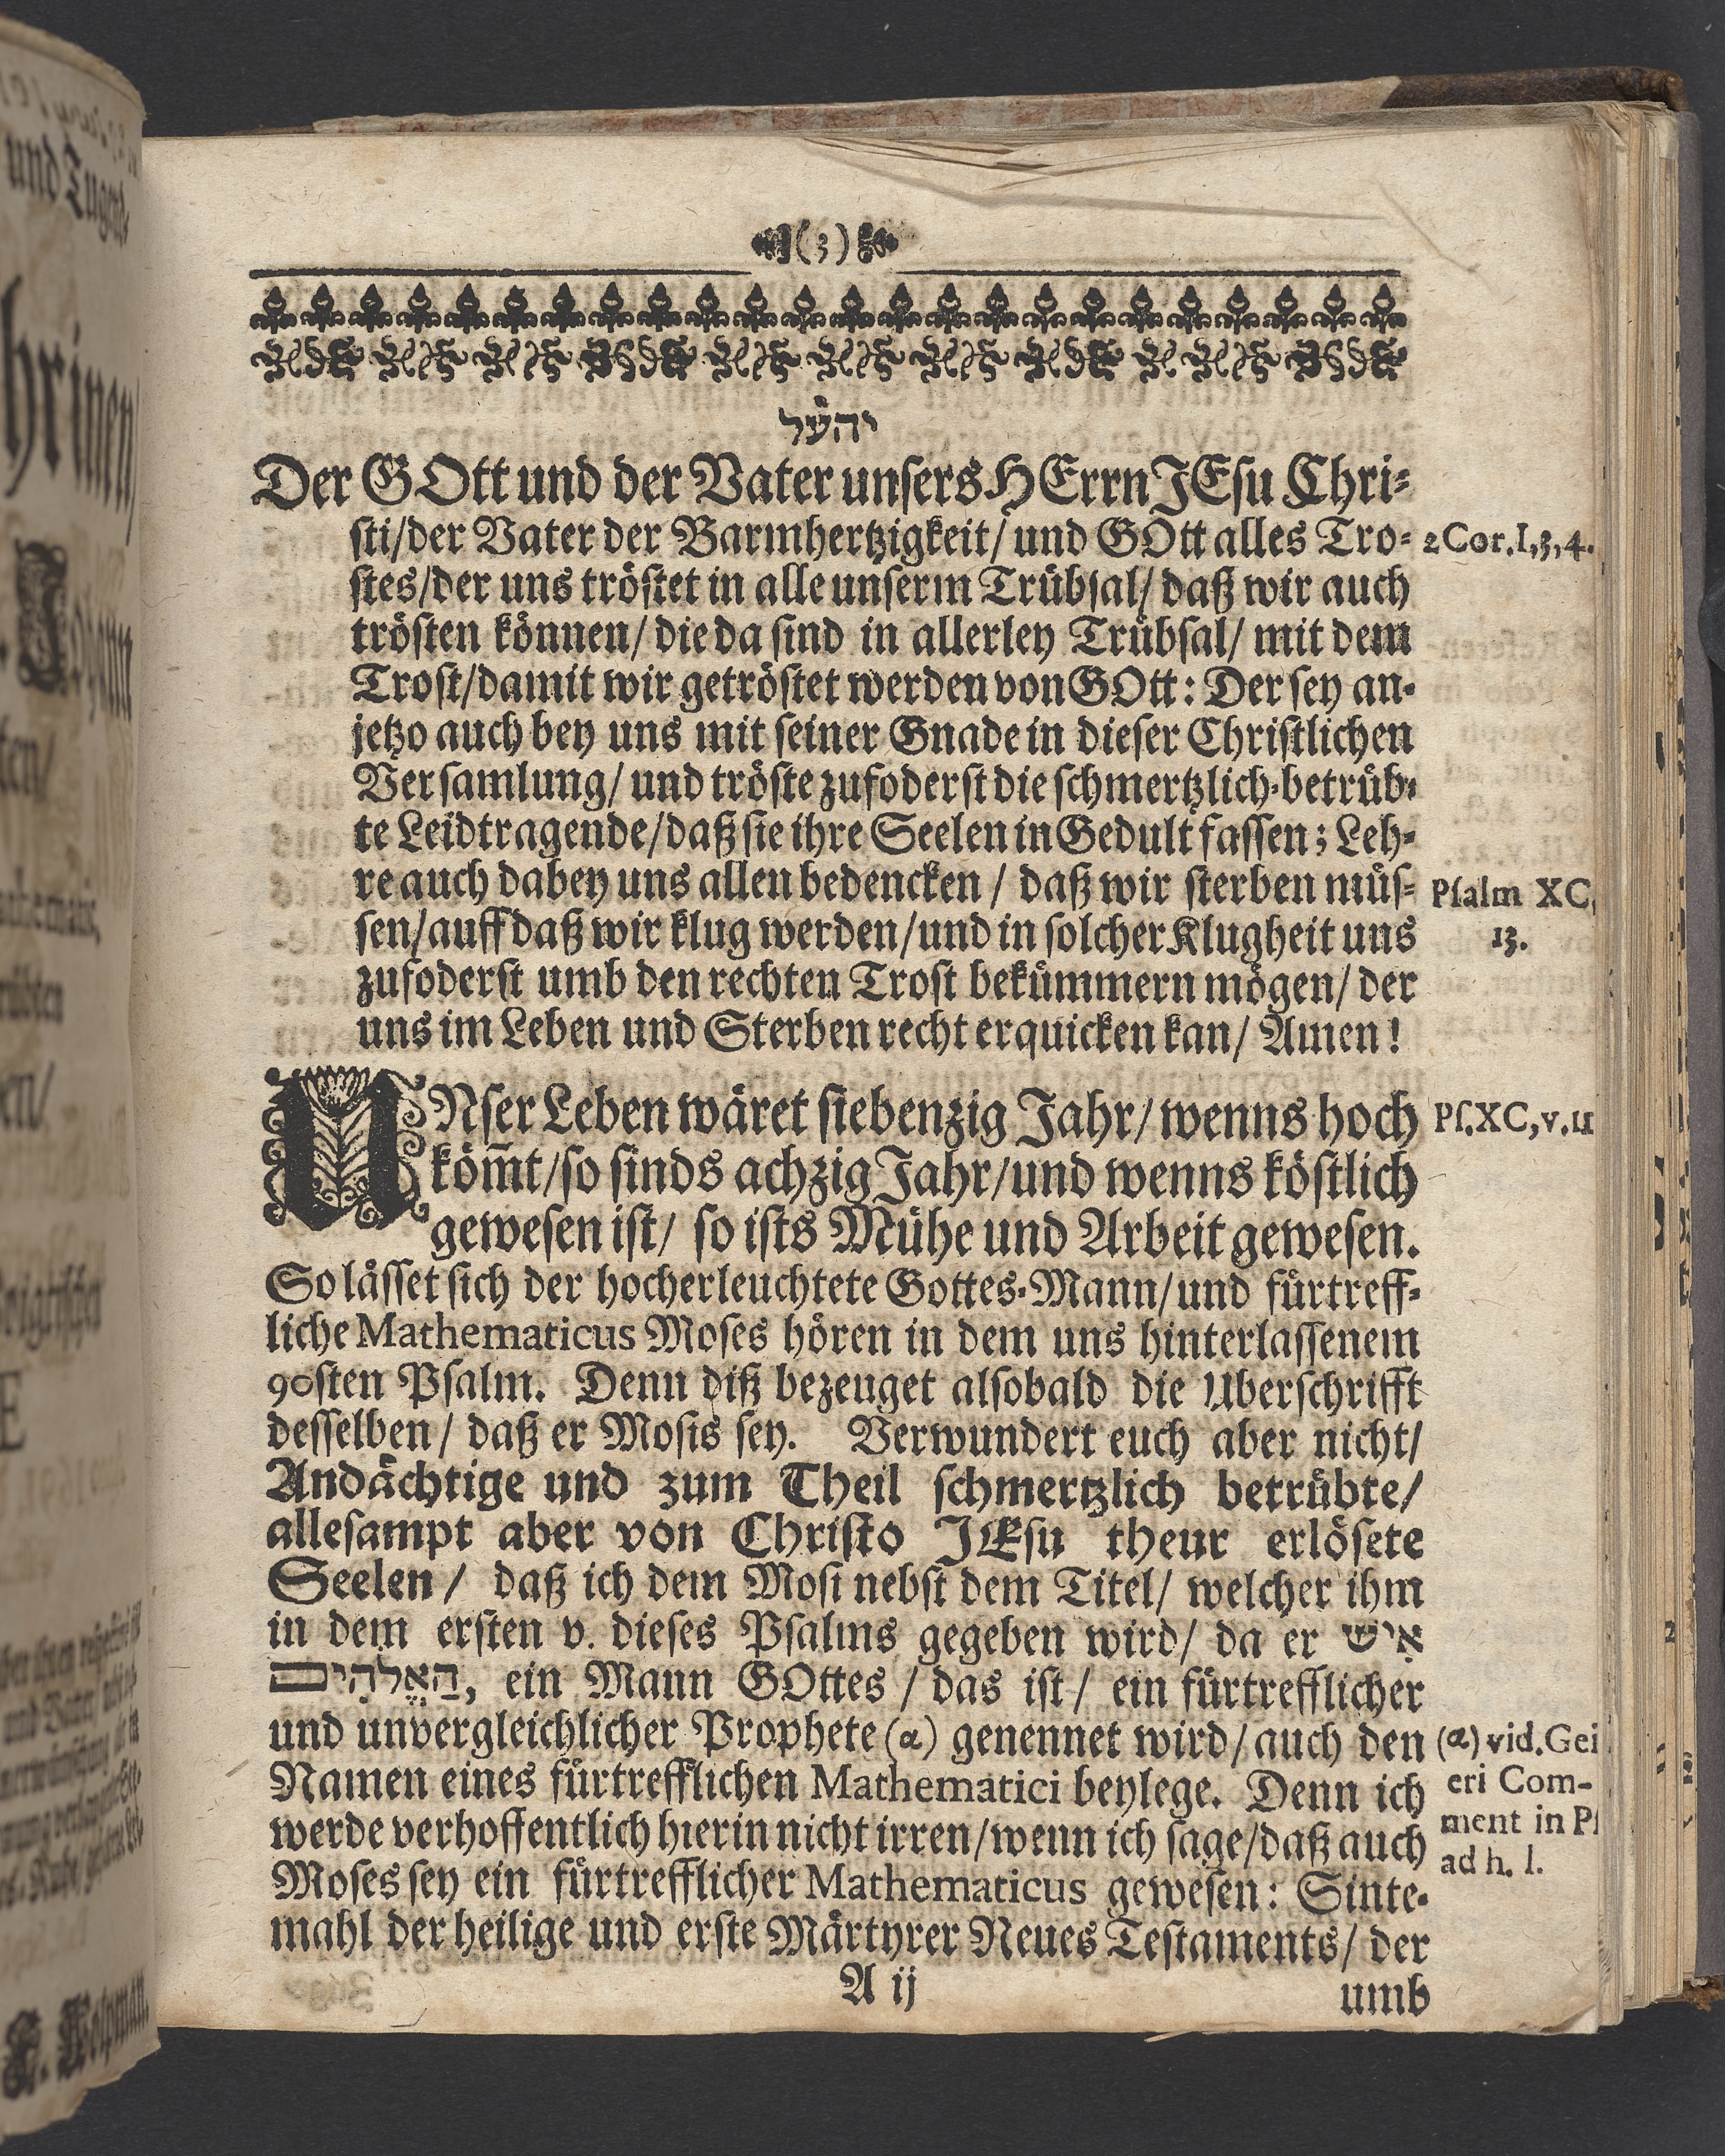 (3)
יהשל
Der GOtt und der Vater unsers HErrn JEsu Chri-
sti/der Vater der Barmhertzigkeit/ und GOtt alles Tro-
2 Cor. I, 3, 4.
stes/der uns tröstet in alle unserm Trübsal/ daß wir auch
trösten können/ die da sind in allerley Trübsal/ mit dem
Trost/damit wir getröstet werden von GOtt: Der sey an-
jetzo auch bey uns mit seiner Gnade in dieser Christlichen
Versamlung/ und tröste zufoderst die schmertzlich-betrüb-
te Leidtragende/daß sie ihre Seelen in Gedult fassen; Leh-
re auch dabey uns allen bedencken / daß wir sterben müs-
Psalm XC,
sen/auff daß wir klug werden/und in solcher Klugheit uns
13.
zufoderst umb den rechten Trost bekümmern mögen/ der
uns im Leben und Sterben recht erquicken kan/ Amen!
UNser Leben wäret siebenzig Jahr/ wenns hoch
Ps. XC, v. 11
köm̄t/so sinds achzig Jahr/und wenns köstlich
gewesen ist/ so ists Mühe und Arbeit gewesen.
So lässet sich der hocherleuchtete Gottes-Mann/und fürtreff-
liche Mathematicus Moses hören in dem uns hinterlassenem
90sten Psalm. Denn diß bezeuget alsobald die Uberschrifft
desselben/ daß er Mosis sey. Verwundert euch aber nicht/
Andächtige und zum Theil schmertzlich betrübte/
allesampt aber von Christo JEsu theur erlösete
Seelen/ daß ich dem Mosi nebst dem Titel/ welcher ihm
in dem ersten v. dieses Psalms gegeben wird/ da er אִישׁ
הַאֱלֹהִים, ein Mann GOttes / das ist/ ein fürtrefflicher
und unvergleichlicher Prophete (a) genennet wird/ auch den
(a) vid. Gei
Namen eines fürtrefflichen Mathematici beylege. Denn ich
eri Com-
werde verhoffentlich hierin nicht irren/wenn ich sage/daß auch
ment in Ps
Moses sey ein fürtrefflicher Mathematicus gewesen: Sinte-
ad h. l.
mahl der heilige und erste Märtyrer Neues Testaments/ der
A ij
umb